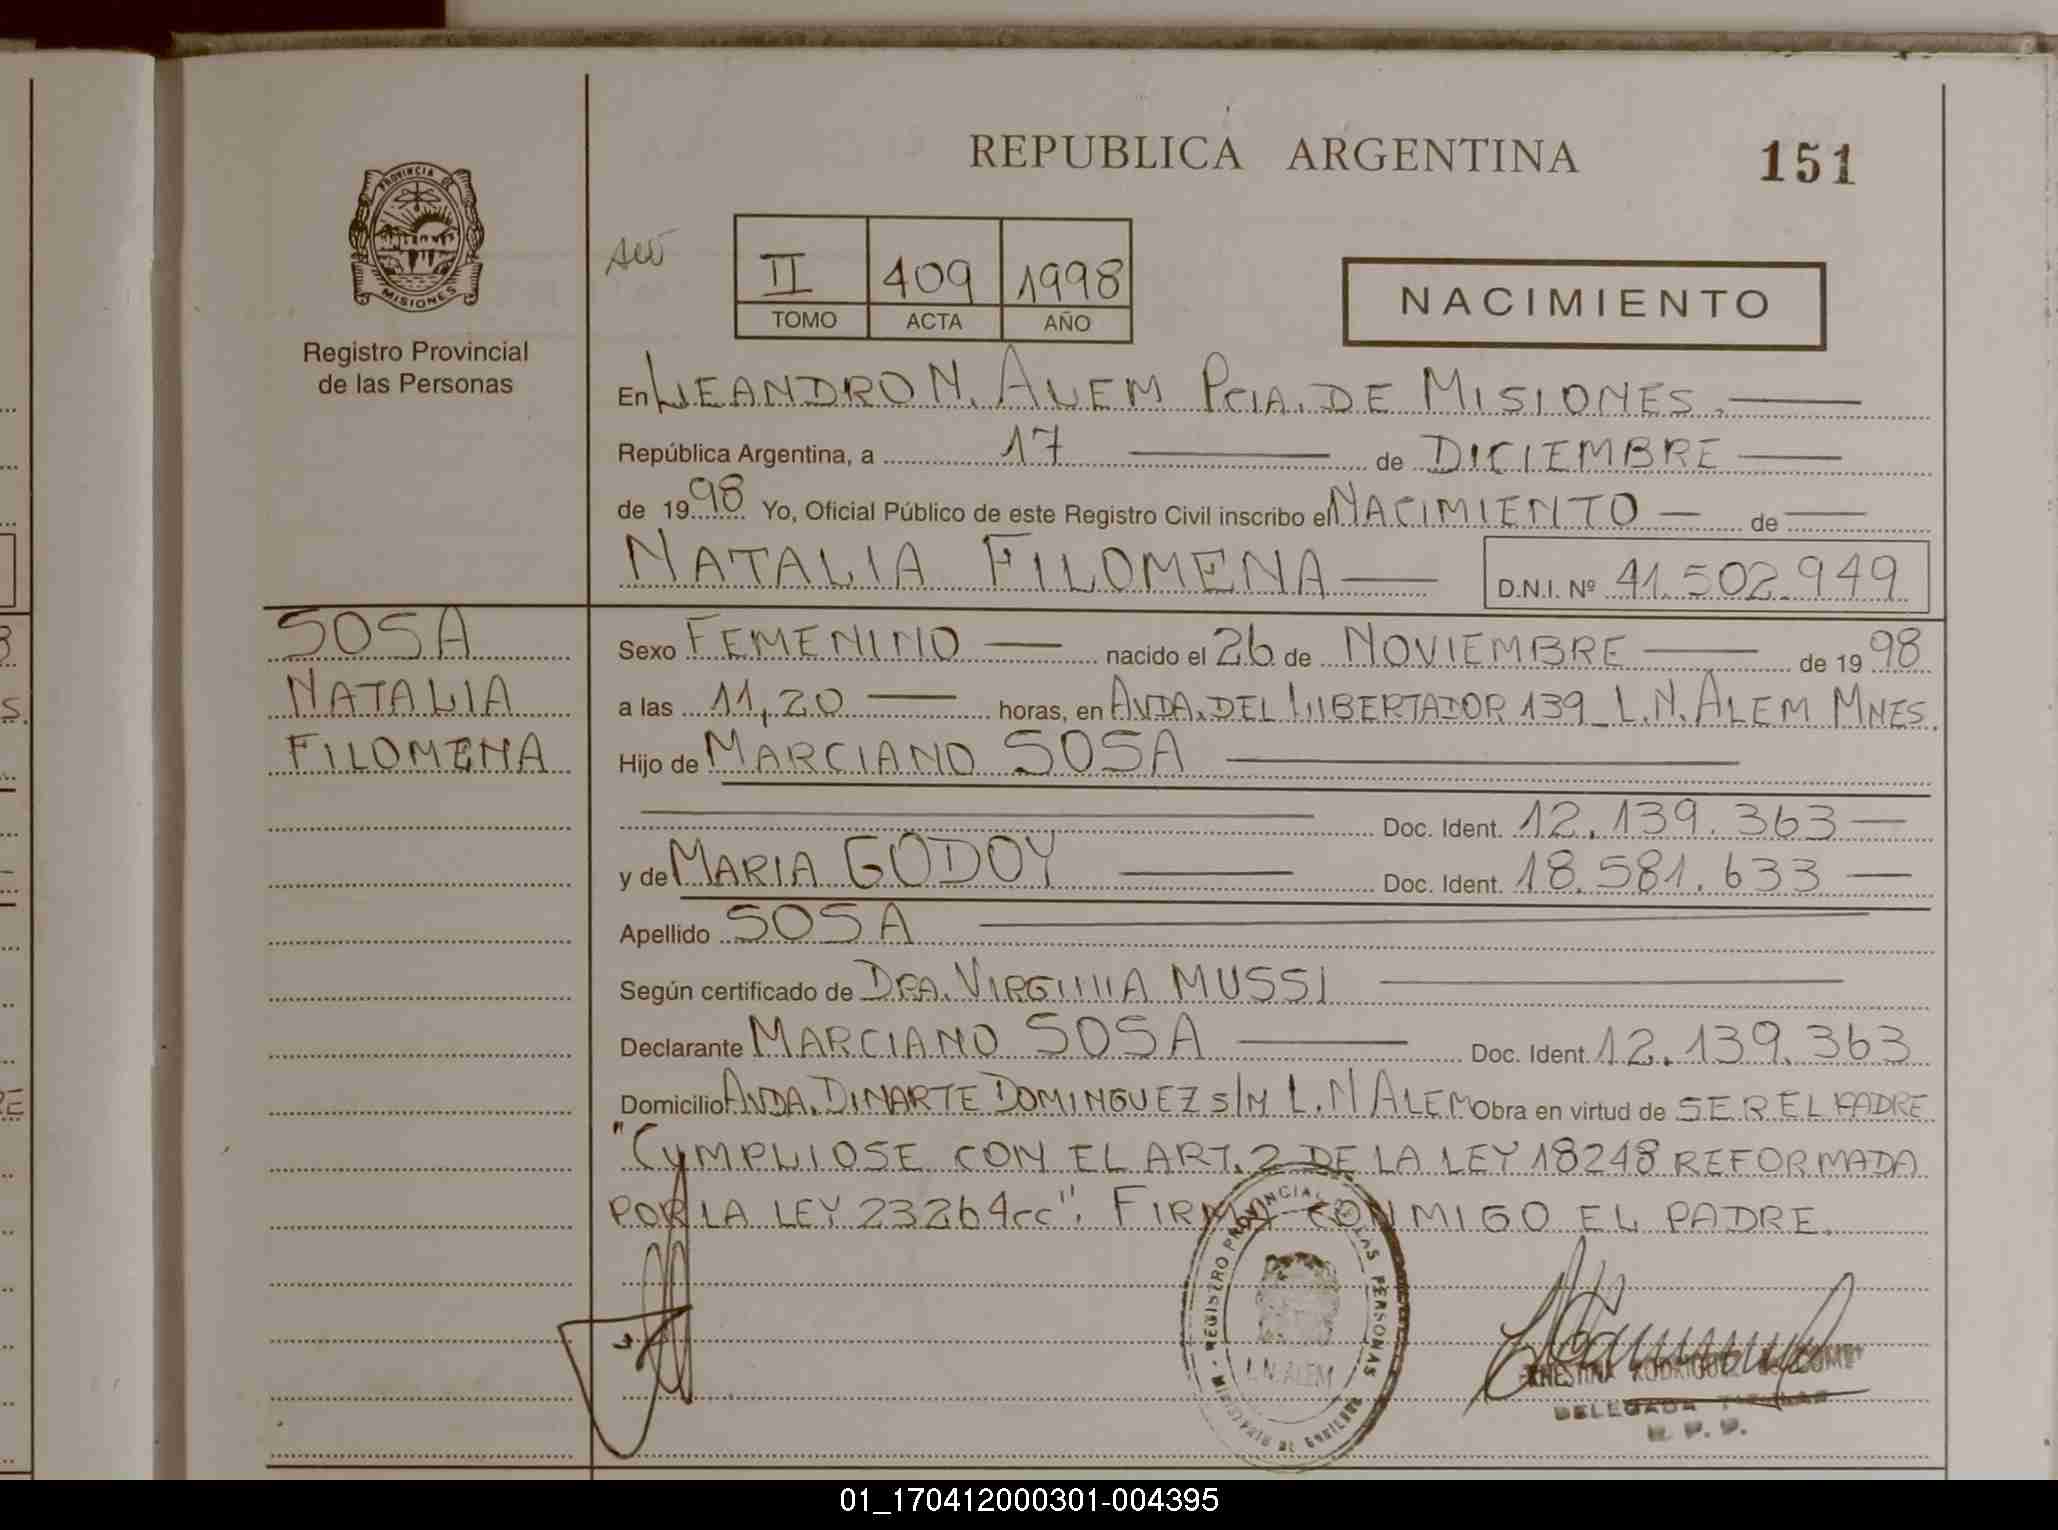 REPUBLICA ARGENTINA
151
PROVINCIA DE
MISIONES
Registro Provincial
de las Personas
II 409 1998
TOMO ACTA AÑO
NACIMIENTO
En LEANDRO N. ALEM PCIA. DE MISIONES.
República Argentina, a 17 de DICIEMBRE
de 1998 Yo, Oficial Público de este Registro Civil inscribo el NACIMIENTO de
NATALIA FILOMENA D.N.I. Nº 41.502.949
SOSA
NATALIA
FILOMENA
Sexo FEMENINO nacido el 26 de NOVIEMBRE de 1998
a las 11,20 horas, en AVDA. DEL LIBERTADOR 139 _ L.N. ALEM MNES.
Hijo de MARCIANO SOSA
Doc. Ident. 12.139.363
y de MARIA GODOY Doc. Ident. 18.581.633
Apellido SOSA
Según certificado de DRA. VIRGINIA MUSSI
Declarante MARCIANO SOSA Doc. Ident. 12.139.363
Domicilio AVDA. DINARTE DOMINGUEZ S/N L.N ALEM Obra en virtud de SER EL PADRE
"CUMPLIOSE CON EL ART. 2 DE LA LEY 18248 REFORMADA
POR LA LEY 23264cc". FIRMA CONMIGO EL PADRE.
REGISTRO PROVINCIAL DE LAS PERSONAS
MINISTERIO DE GOBIERNO
L.N. ALEM
ERNESTINA RODRIGUEZ
DELEGADA TITULAR
R. P. P.
01_170412000301-004395